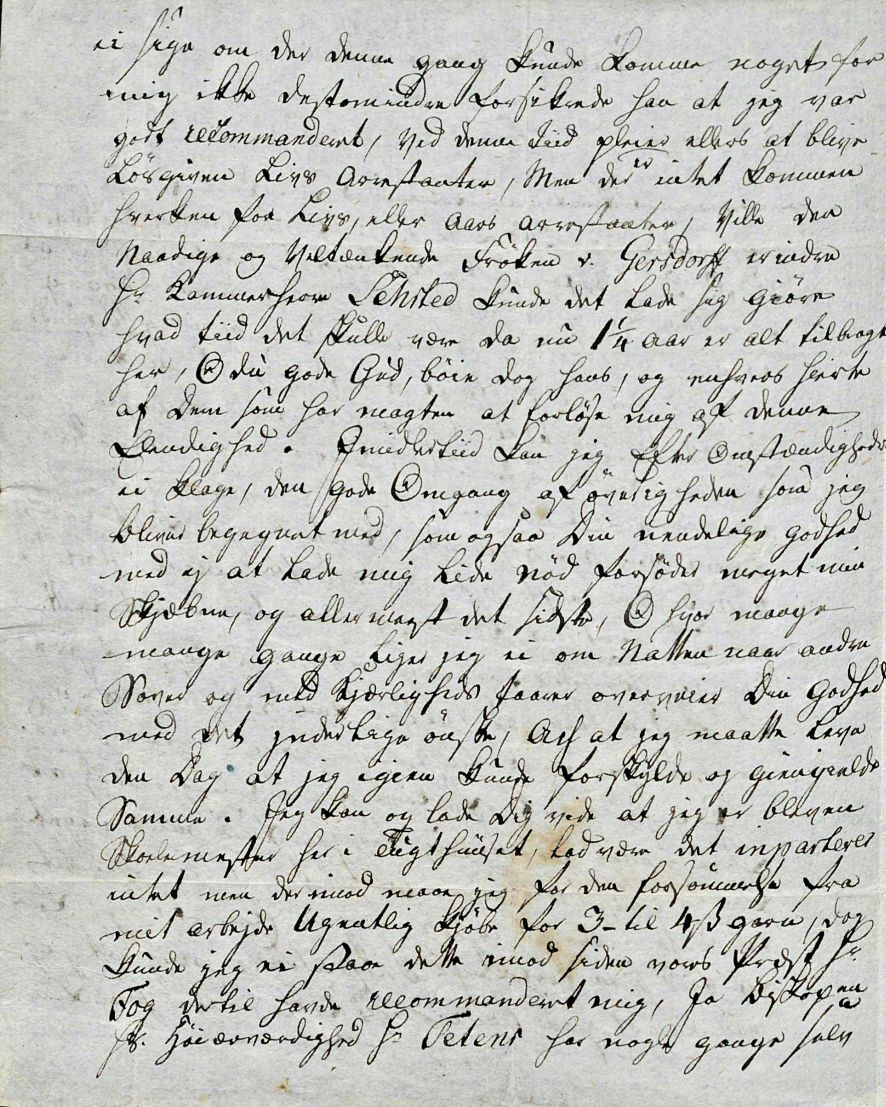 ei sige om der denne gang kunde komme noget for
mig ikke destomindre forsikrede han at jeg var
godt recommanderet, ved denne Tiid pleier ellers at blive
Løsgiven Livs Arrestanter, Men der er intet kommen
hverken for Livs, eller Aars Arrestanter, Ville den
Naadige og Veltænkende Frøken v. Gersdorff erindre
Hr Kammerherre Sehsted kunde det lade sig giøre
hvad tiid det skulle være da nu 1 1/4 Aar er alt tilbragt
her, O du gode Gud, bøie dog hans, og enhvers hierte
af Dem som har magten at forløse mig af denne
Elendighed. Imidlertiid kan jeg Efter Omstændigheder
ei klage, den gode Omgang af øvrigheden som jeg
bliver begegnet med, som ogsaa Din uendelige godhed
med ej at lade mig Lide Nød forsøder meget min
Skjæbne, og allermeest det sidste, O hvor mange
mange gange liger jeg ei om Natten naar andre
Sover og med Kjærligheds taarer overveier Din Godhed
med det jnderlige ønske, Ach at jeg maatte Leve
den Dag at jeg igien kunde forskylde og giengielde
Samme. Jeg kan og lade Dig vide at jeg er bleven
Skolemester her i Tugthuuset, lad være det inparterer
intet men derimod maae jeg for den forsømmelse fra
mit arbejde Ugentlig kjøbe for 3- til 4ß garn, dog
kunde jeg ei staae dette imod siden vores Præst Hr
Fog dertil havde recommanderet mig, Ja Biskopen
Hs. Høiærværdighed Hr Tetens har nogle gange selv